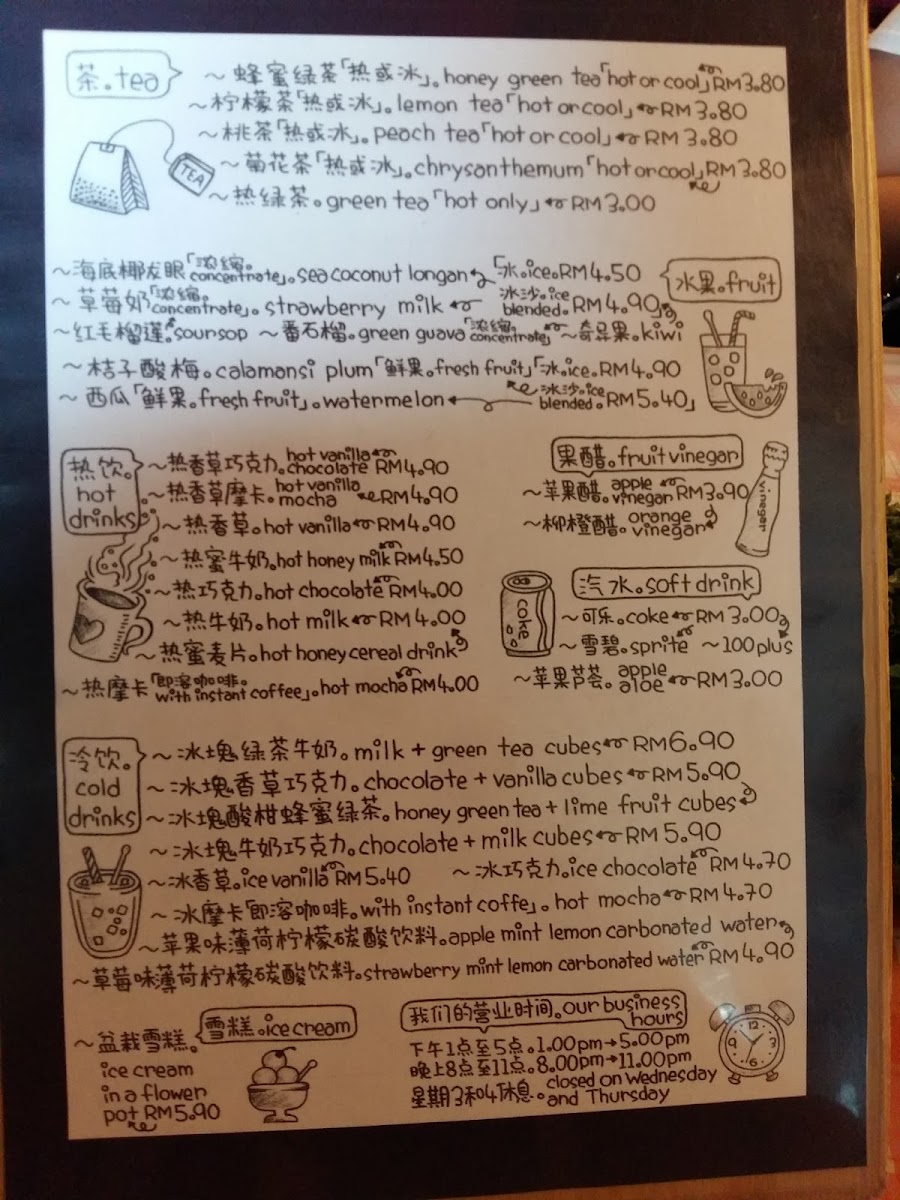 茶。tea
~蜂蜜绿茶「热或冰」。honey green tea「hot or cool」RM3.80
~柠檬茶「热或冰」。lemon tea「hot or cool」RM3.80
~桃茶「热或冰」。peach tea「hot or cool」RM3.80
~菊花茶「热或冰」。chrysanthemum「hot or cool」RM3.80
~热绿茶。green tea「hot only」RM3.00
TEA
水果。fruit
~海底椰龙眼「浓缩。concentrate」。sea coconut longan「冰。ice。RM4.50
~草莓奶「浓缩。concentrate」。strawberry milk 冰沙。ice blended。RM4.90
~红毛榴莲。soursop ~番石榴。green guava「浓缩。concentrate」 ~奇异果。kiwi
~桔子酸梅。calamansi plum「鲜果。fresh fruit」「冰。ice。RM4.90
~西瓜「鲜果。fresh fruit」。watermelon 冰沙。ice blended。RM5.40」
热饮。
hot
drinks
~热香草巧克力。hot vanilla chocolate RM4.90
~热香草摩卡。hot vanilla mocha RM4.90
~热香草。hot vanilla RM4.90
~热蜜牛奶。hot honey milk RM4.50
~热巧克力。hot chocolate RM4.00
~热牛奶。hot milk RM4.00
~热蜜麦片。hot honey cereal drink
~热摩卡「即溶咖啡。with instant coffee」。hot mocha RM4.00
果醋。fruit vinegar
~苹果醋。apple vinegar RM3.90
~柳橙醋。orange vinegar
vinegar
汽水。soft drink
~可乐。coke RM3.00
~雪碧。sprite ~100plus
~苹果芦荟。apple aloe RM3.00
coke
冷饮。
cold
drinks
~冰塊绿茶牛奶。milk + green tea cubes RM6.90
~冰塊香草巧克力。chocolate + vanilla cubes RM5.90
~冰塊酸柑蜂蜜绿茶。honey green tea + lime fruit cubes
~冰塊牛奶巧克力。chocolate + milk cubes RM5.90
~冰香草。ice vanilla RM5.40 ~冰巧克力。ice chocolate RM4.70
~冰摩卡「即溶咖啡。with instant coffe」。hot mocha RM4.70
~苹果味薄荷柠檬碳酸饮料。apple mint lemon carbonated water
~草莓味薄荷柠檬碳酸饮料。strawberry mint lemon carbonated water RM4.90
雪糕。ice cream
~盆栽雪糕。
ice cream
in a flower
pot RM5.90
我们的营业时间。our business hours
下午1点至5点。1.00pm→5.00pm
晚上8点至11点。8.00pm→11.00pm
星期3和4休息。closed on Wednesday and Thursday
12
3
6
9